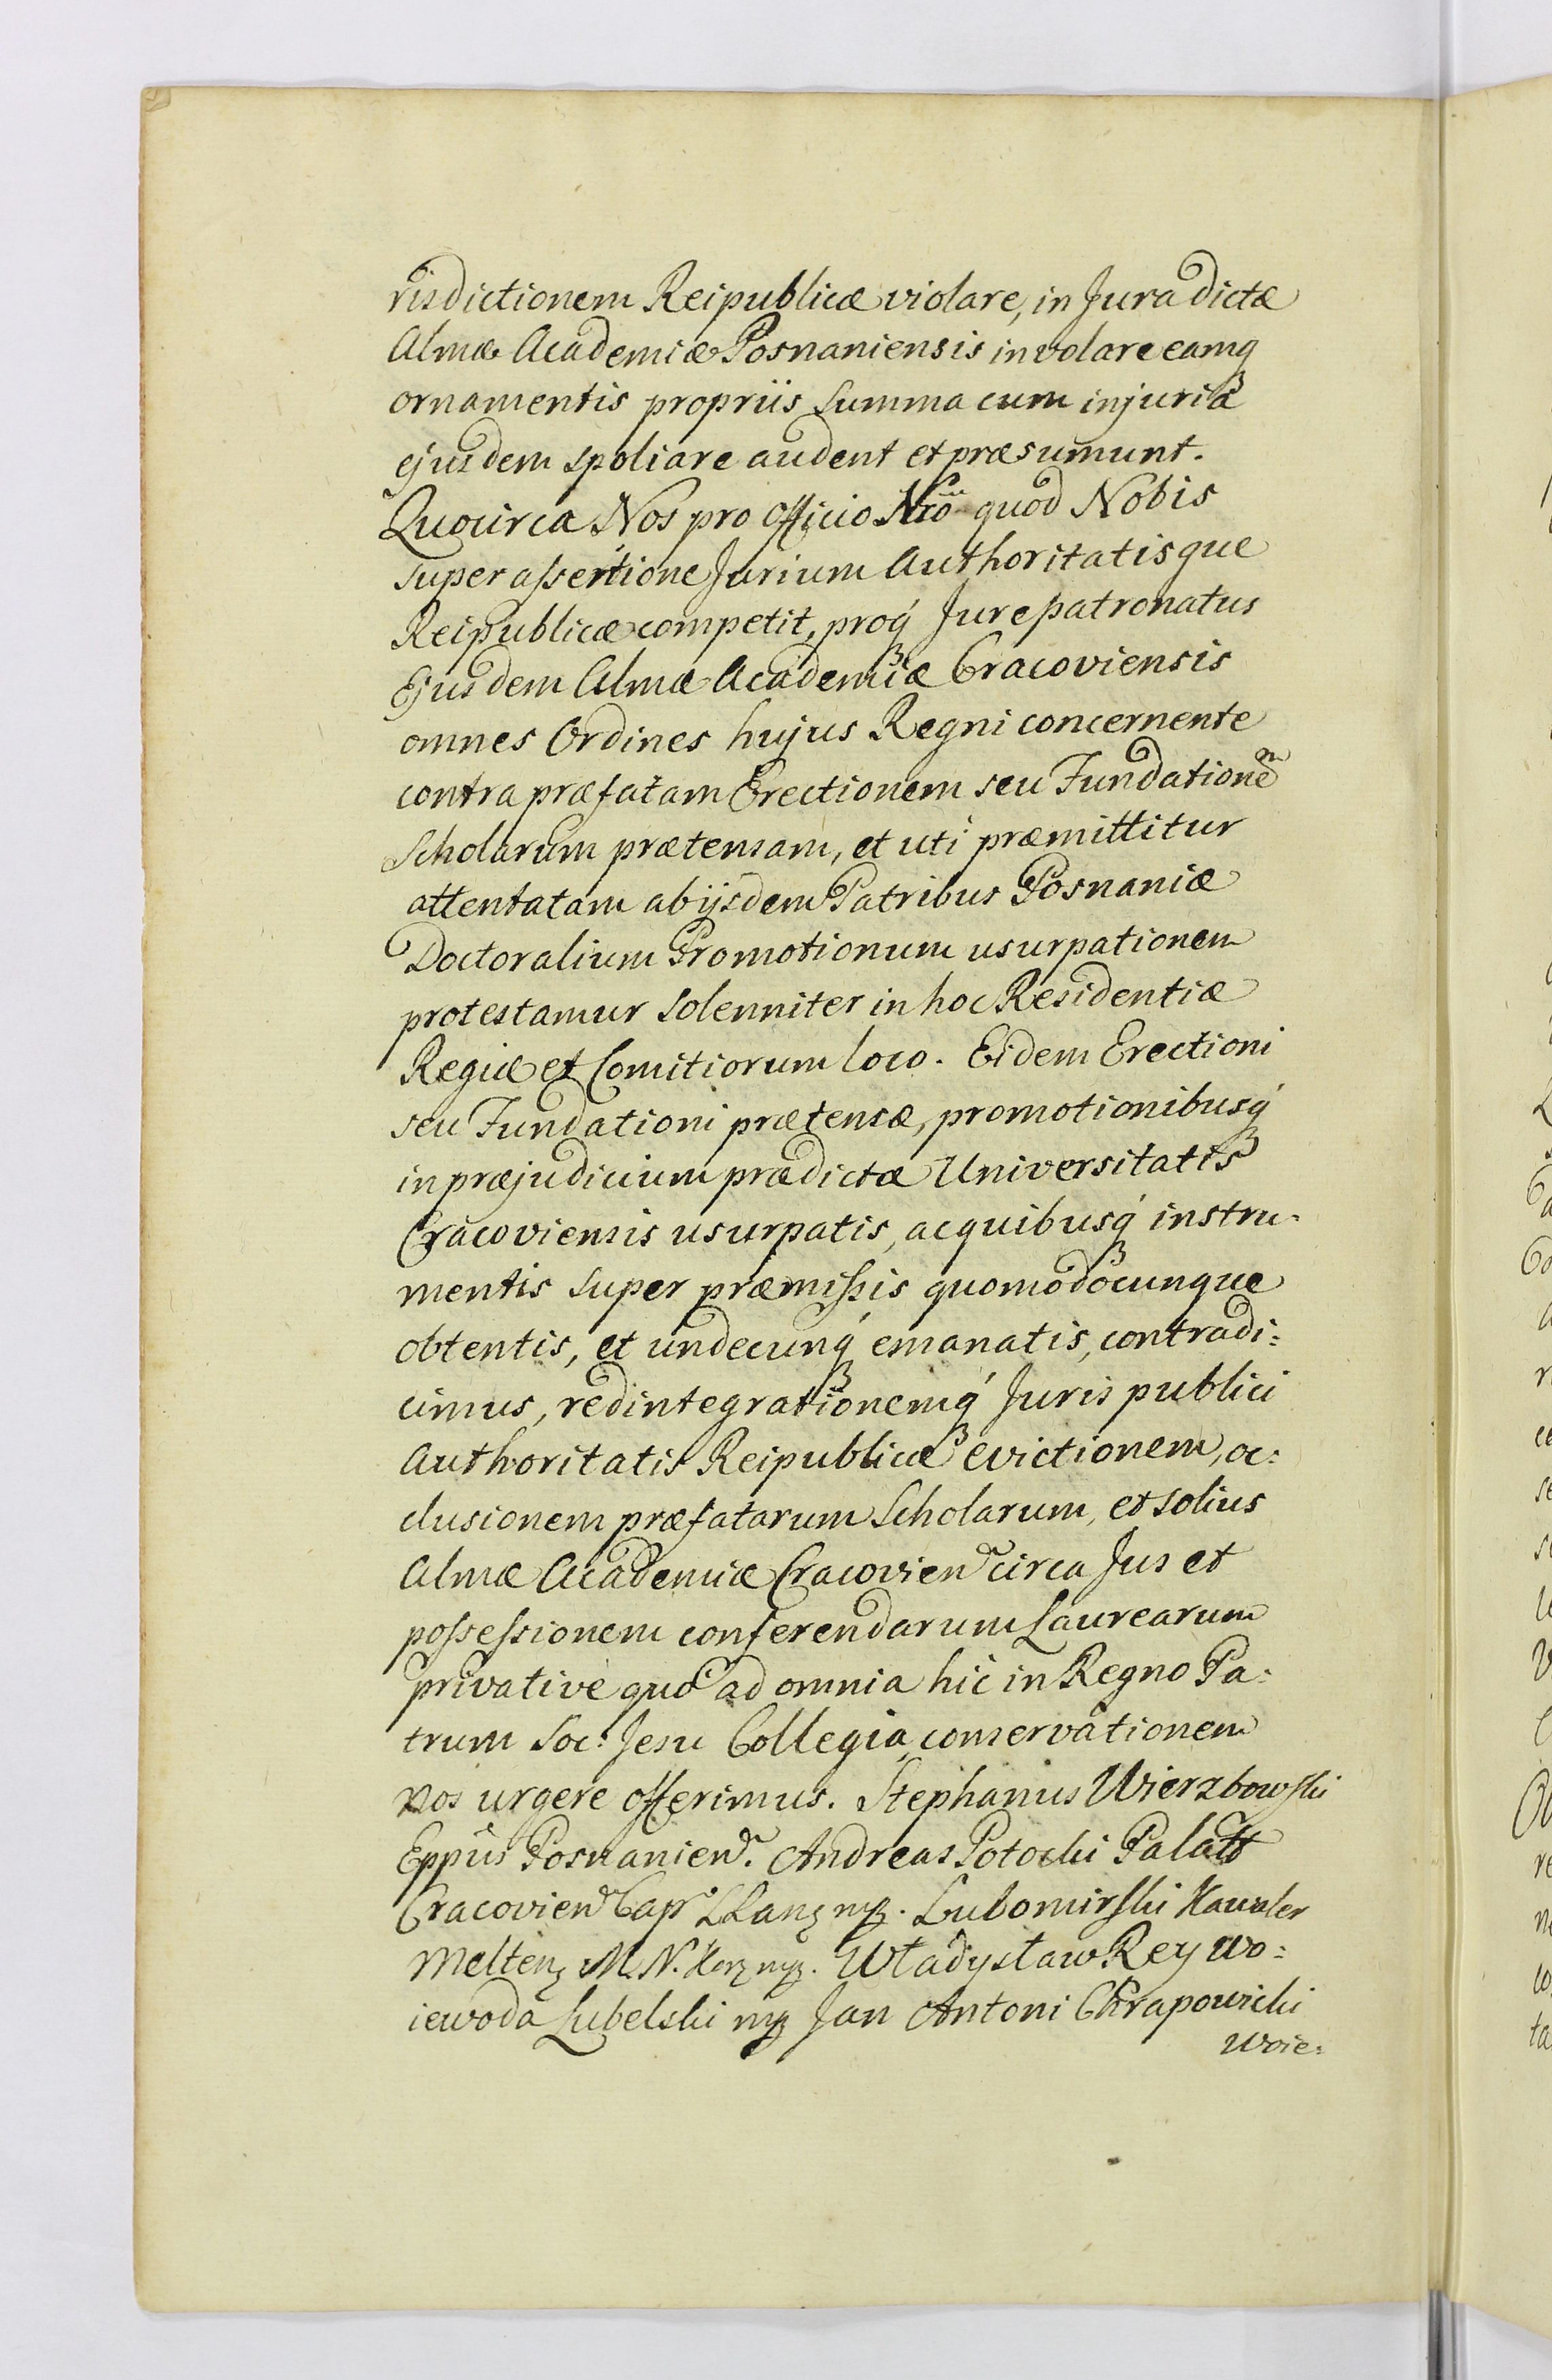 risdictionem Reipublicæ violare, in Jura dictæ
Almæ Academiæ Posnaniensis involare eamq́ꝫ
ornamentis propriis summa cum injuriâ
ejusdem spoliare audent et præsumunt.
Quocirca Nos pro officio Nrõ quod Nobis
super assertione Jurium Authoritatisque
Reipublicæ competit, proq́ꝫ Jure patronatus
Ejusdem Almæ Academiæ Cracoviensis
omnes Ordines hujus Regni concernente
contra præfatam Erectionem seu Fundationẽ
Scholarum prætensam, et uti præmittitur
attentatam ab ijsdem Patribus Posnaniæ
Doctoralium Promotionum usurpationem
protestamur solenniter in hoc Residentiæ
Regiæ et Comitiorum loco. Eidem Erectioni
seu Fundationi prætensæ, promotionibusq́ꝫ
in præjudicium prædictæ Universitatis
Cracoviensis usurpatis, ac quibusq́ꝫ instru-
mentis super præmissis quomodocunque
obtentis, et undecunq́ꝫ emanatis, contradi-
cimus, redintegrationemq́ꝫ Juris publici
Authoritatis Reipublicæ evictionem, oc-
clusionem præfatarum Scholarum, et solius
Almæ Academiæ Cracovien circa Jus et
possessionem conferendarum Laurearum
privative quo ad omnia hic in Regno Pa-
trum Soc: Jesu Collegia, conservationem
nos urgere offerimus. Stephanus Wierzbowski
Eppus Posnanien. Andreas Potocki Palatt
Cracovien Cap mp. Lubomirski Kawaler
M. N. mp. Władysław Rey Wo-
iewoda Lubelski mp Jan Antoni Chrapowicki
Woie-